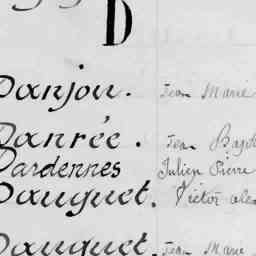 D
Danjou. Jean Marie
Danrée. Jean Bapt
Dardennes Julien Pierre
Dauguet. Victor Alex
Dauguet. Jean Marie